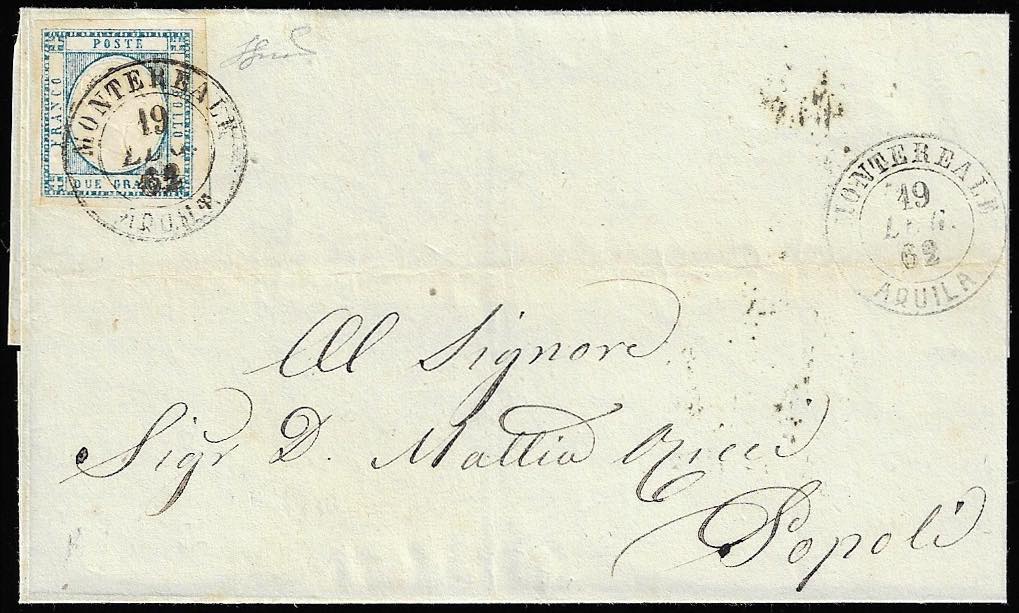 POSTE
FRANCO
BOLLO
DUE GRANA
MONTEREALE
19
62
AQUILA
MONTEREALE
19
62
AQUILA
Al Signore
Sigr D. Mattia Ricci
Popoli